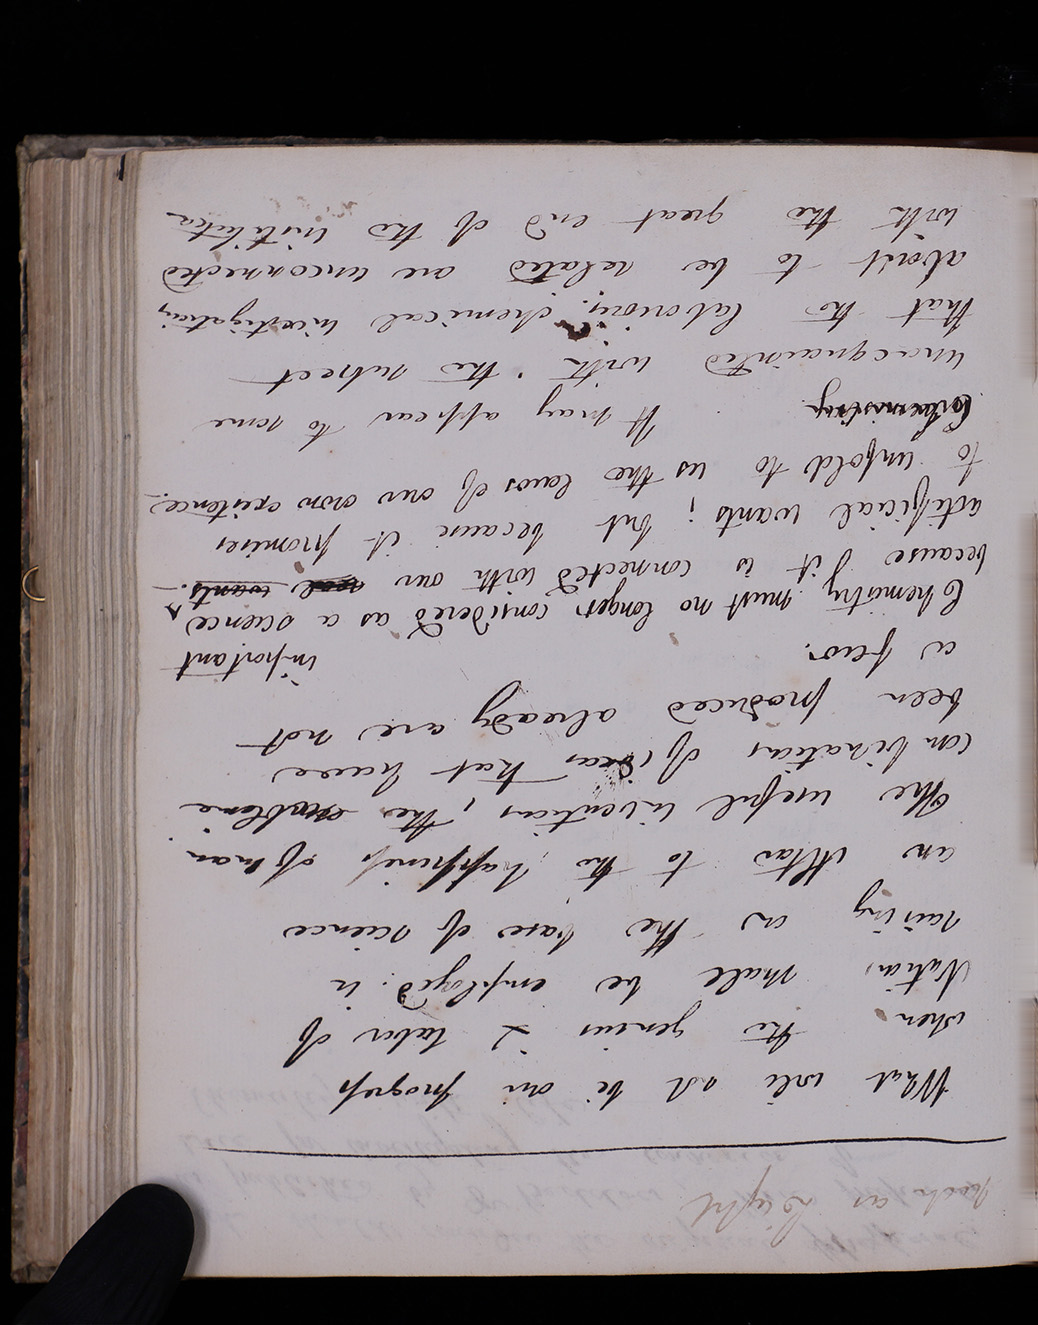 such as Light
What will not be our progress
when the genius & labor of
Nations shall be employed in
raising on the base of science
an Altar to the happiness of man.
The useful inventions, the sublime
combinations of ideas that have
been produced already are not
a few.
important
Chemistry must no longer considered as a science
because it is connected with our real wants.
artificial wants; but because it promises
to unfold to us the laws of our own existence.
Chemistry It may appear to some
unacquainted with the subject
that the laborious chemical investigations
about to be related are unconnected
with the great end of the institution